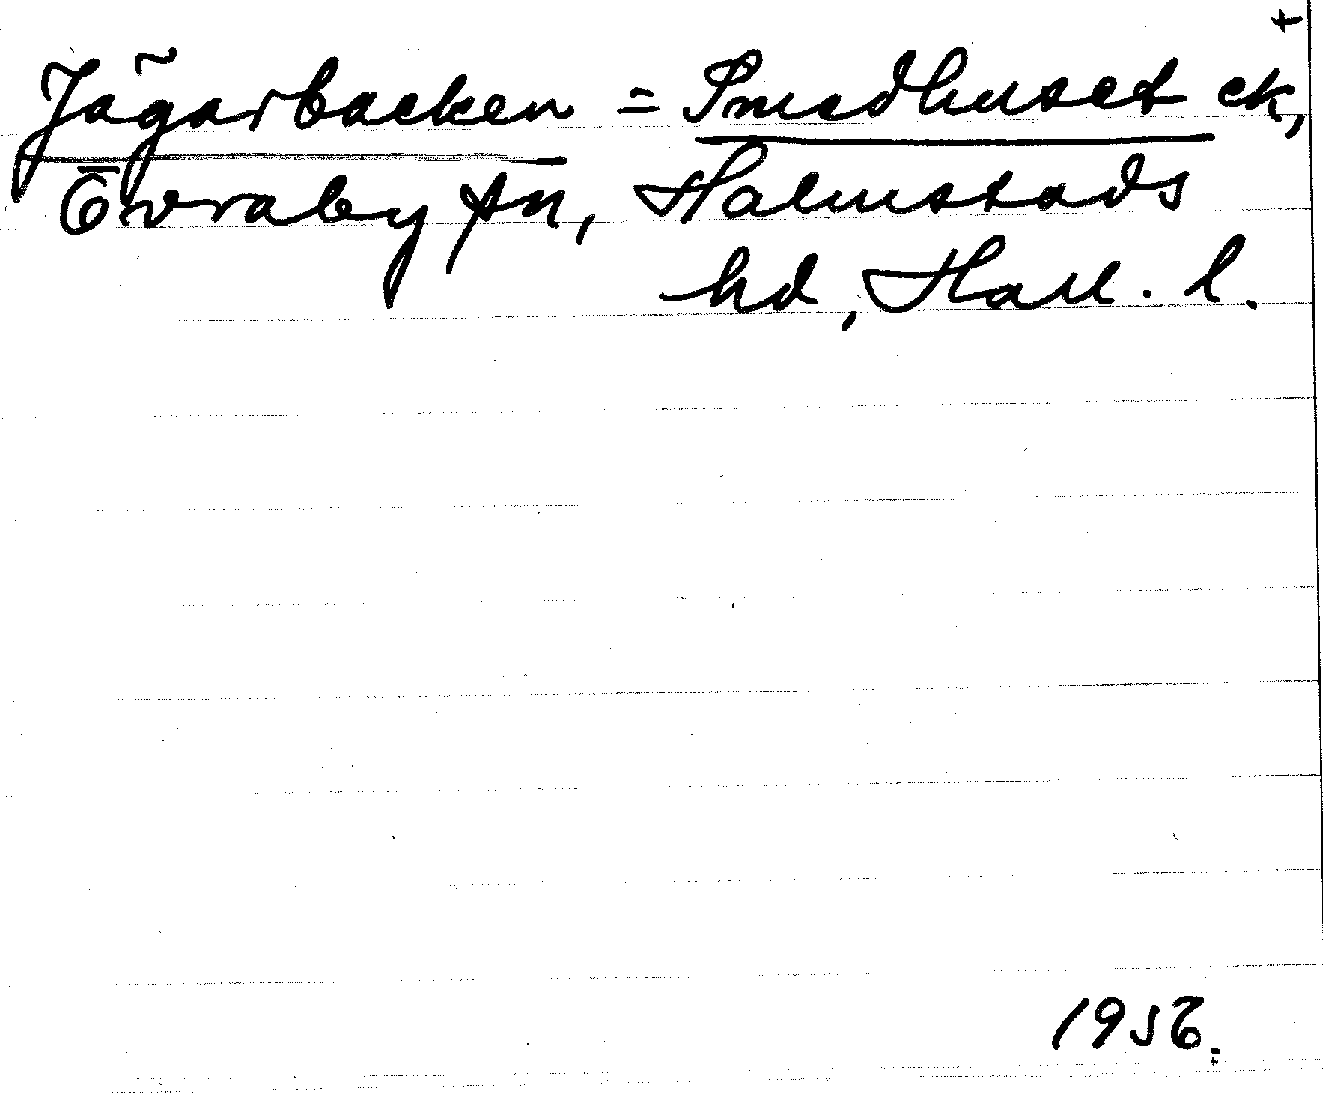 +
Jägarbacken = Smedhuset ek,
Övraby sn, Halmstads
hd, Hall. l.
1956.